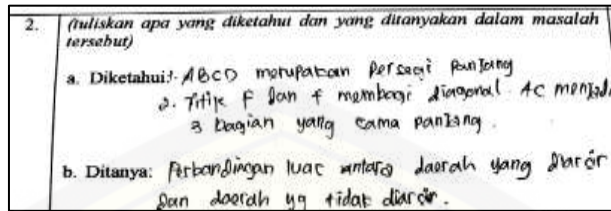 2. (tuliskan apa yang diketahui dan yang ditanyakan dalam masalah
tersebut)
a. Diketahui: 1. ABCD merupakan Persegi Panjang
2. Titik F dan F membagi diagonal AC menjadi
3 bagian yang sama panjang.
b. Ditanya: Perbandingan luas antara daerah yang diarsir
dan daerah yg tidak diarsir.